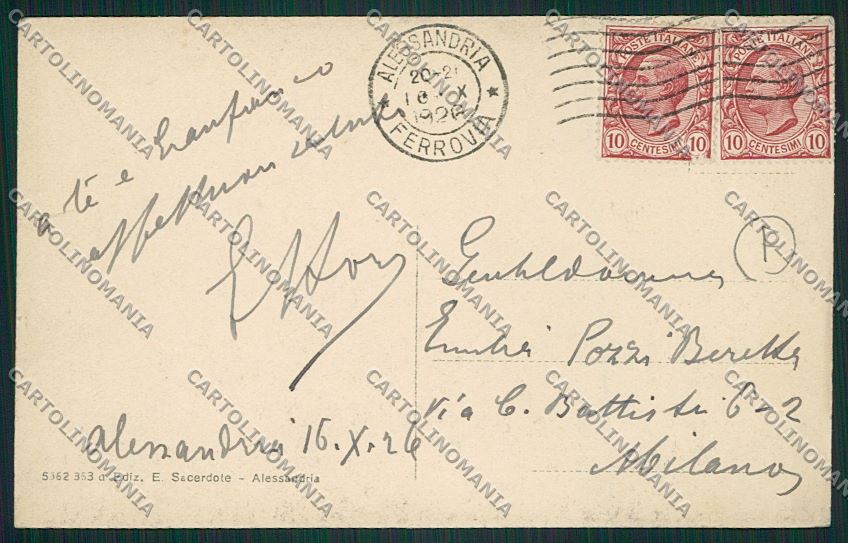 ALESSANDRIA
20-21
X
1926
FERROVIA
POSTE ITALIANE
10 CENTESIMI 10
POSTE ITALIANE
10 CENTESIMI 10
a te e Gianfranco
affettuosi saluti
Ettore
Alessandria 16.X.26
5362 363 d Ediz. E. Sacerdote - Alessandria
Gentildonna
Emilia Pozzi Beretta
Via C. Battisti 2
Milano
CARTOLINOMANIA